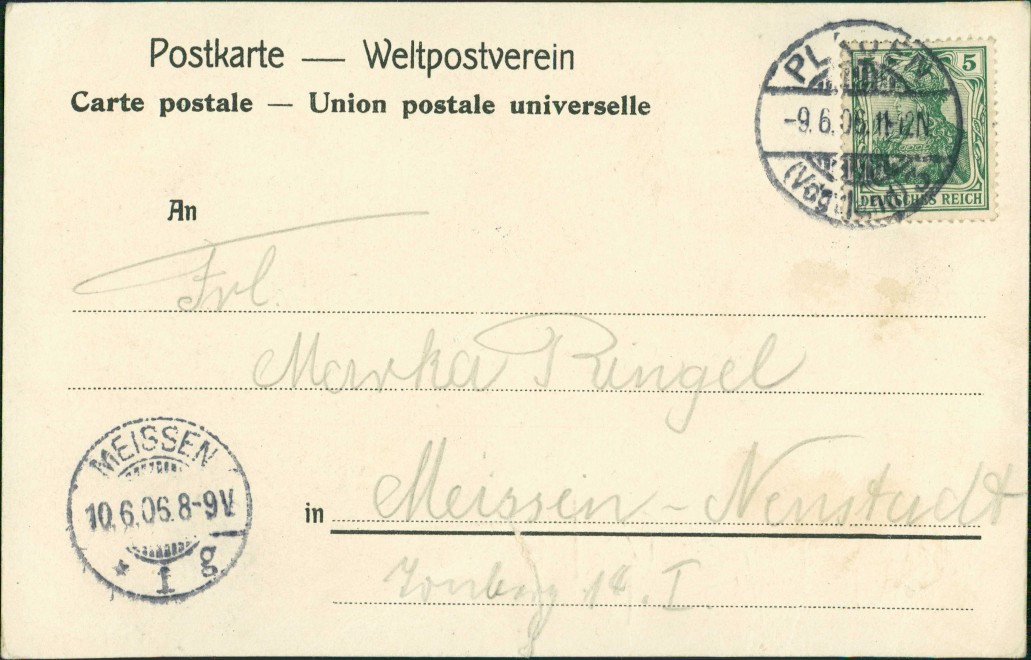 Postkarte — Weltpostverein
Carte postale — Union postale universelle
PLAUEN
-9.6.06.11-12N
(Vogtl.)
5
DEUTSCHES REICH
An
Frl.
Marka Ringel
MEISSEN
10.6.06.8-9V
* 1 g
in Meissen-Neustadt
14. I.